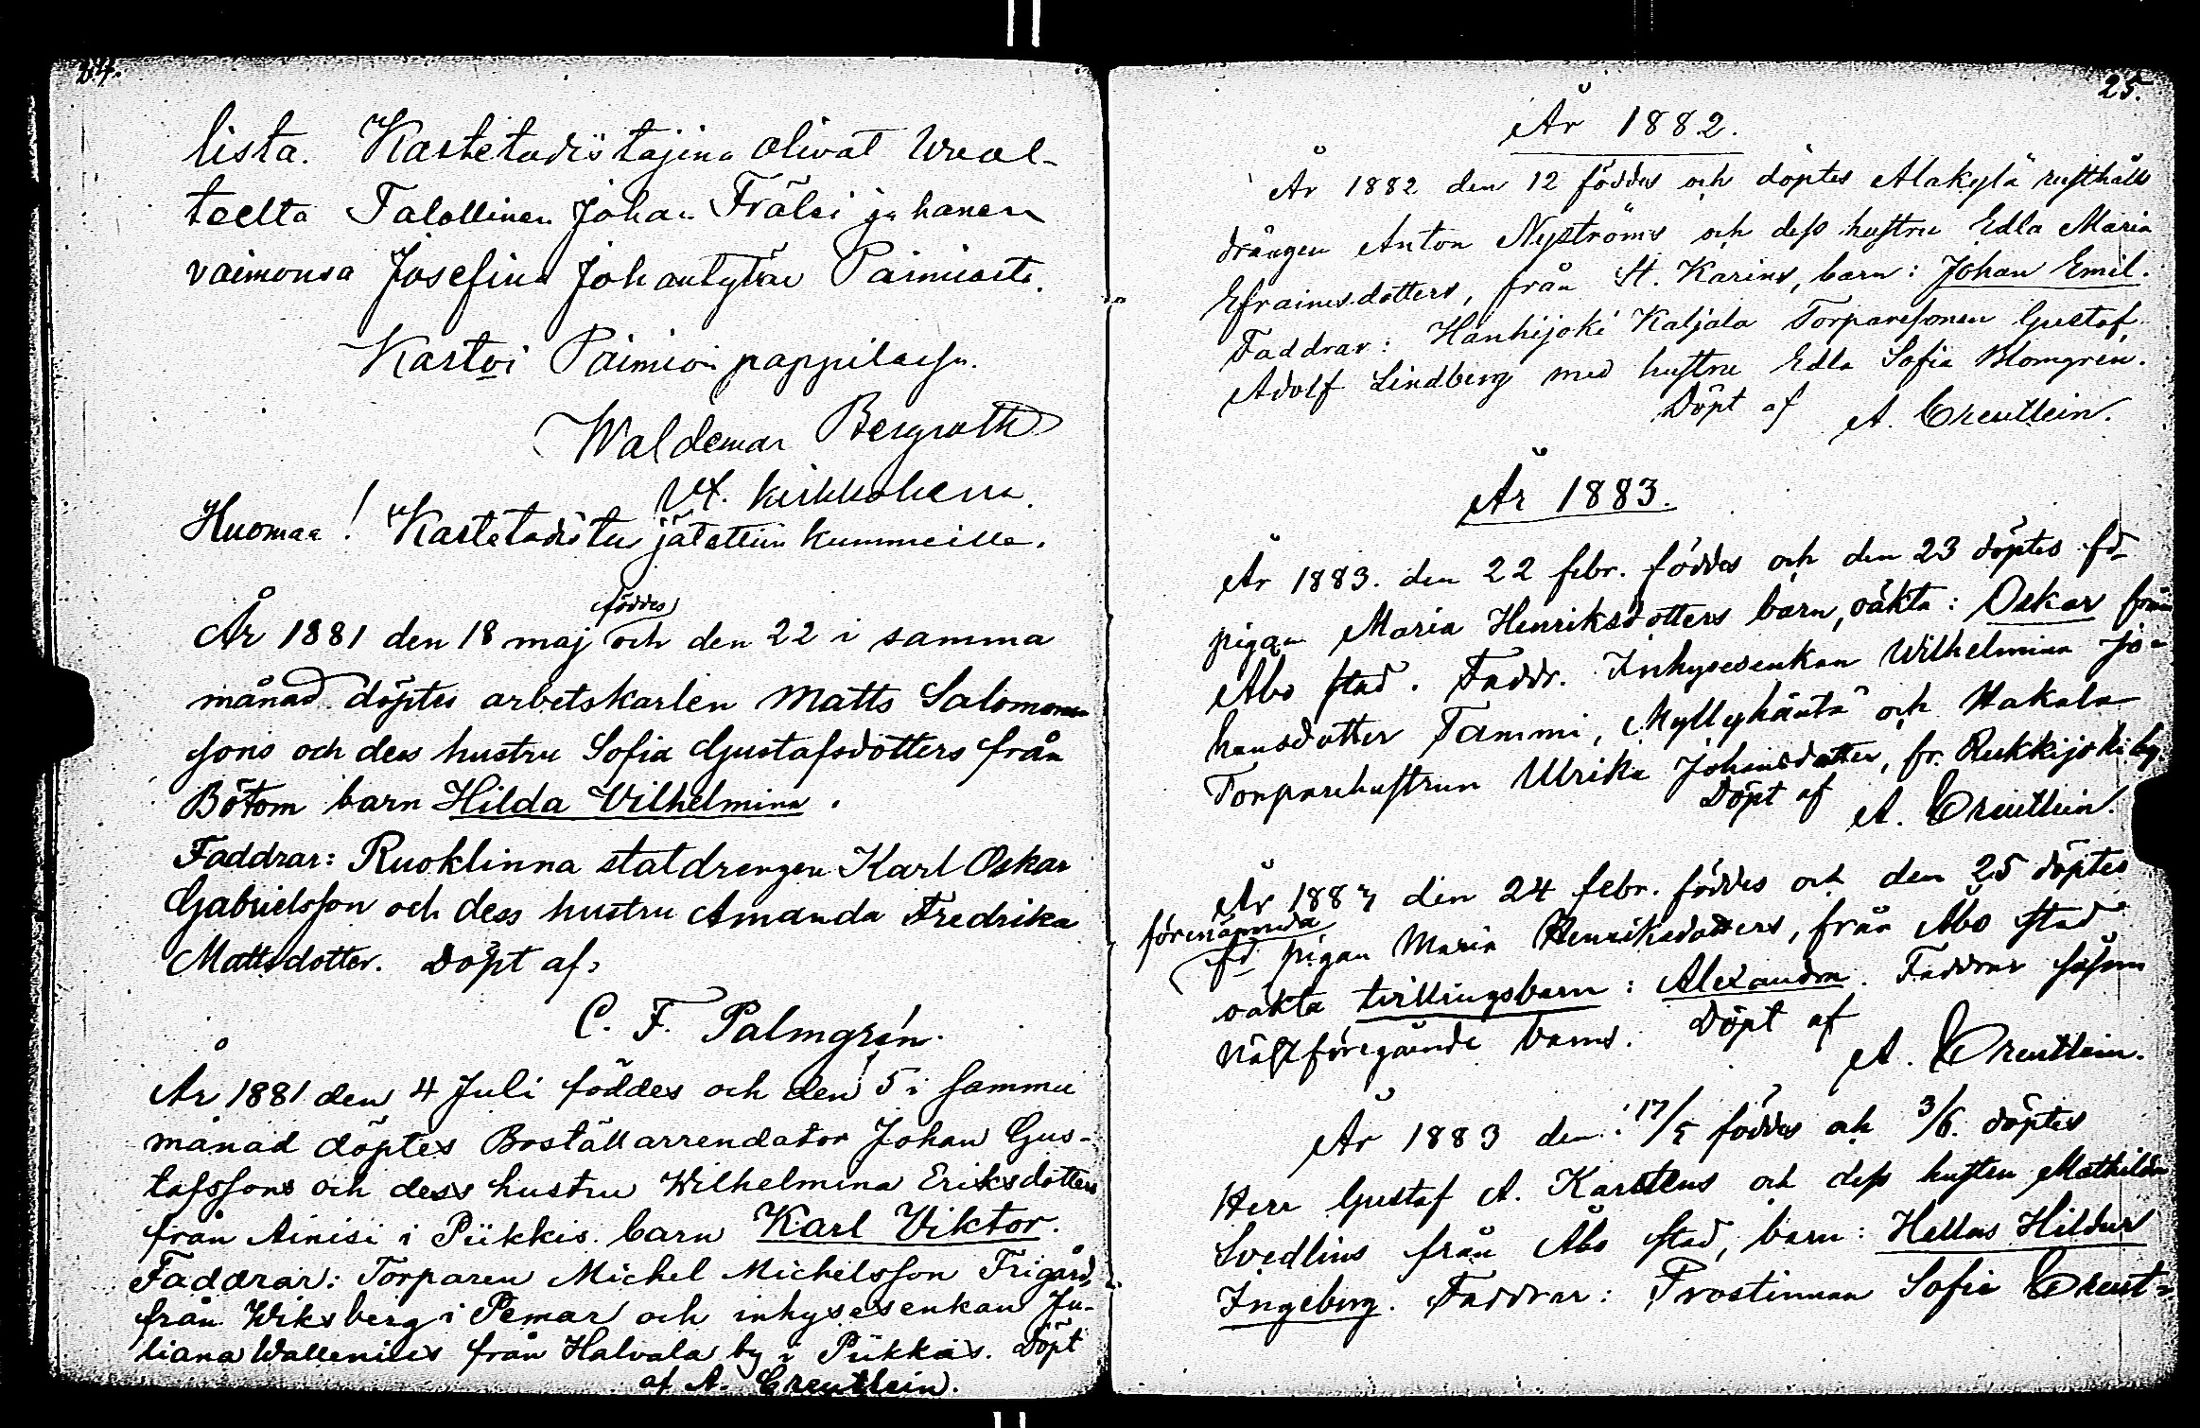 24.
lista. Kastetodistajina olivat Wreal-
teelta Talollinen Johan Frälsi ja hanen
vaimonsa Josefina Johantytär Paimiosta.
Kastoi Paimion pappilassa.
Waldemar Bergroth
Vt. Kirkkoherra.
Huomaa! Kastetodistus jätettiin kummeille.
föddes
År 1881 den 18 maj och den 22 i samma
månad döptes arbetskarlen Matts Salomons
sons och dess hustru Sofia Gustafsdotters från
Bötom barn Hilda Vilhelmina.
Faddrar: Ruoklinna statdrengen Karl Oskar
Gabrielsson och dess hustru Amanda Fredrika
Mattsdotter. Döpt af,
C. F. Palmgrén.
År 1881 den 4 Juli föddes och den 5 i samma
månad döptes Boställarrendator Johan Gus-
tafssons och dess hustru Wilhelmina Eriksdotters
från Ainisi i Piikkis. barn Karl Viktor.
Faddrar: Torparen Michel Michelsson Frigård,
från Wiksberg i Pemar och inhysesenkan Ju-
liana Wallenius från Halvala by i Piikkis. Döpt
af A. Creutlein.
25.
År 1882.
År 1882 den 12 föddes och döptes Alakylä rusthålls
drängen Anton Nyströms och dess hustru Edla Maria
Efraimsdotters, från St. Karins, barn: Johan Emil.
Faddrar: Hanhijoki Kaljala Torparesonen Gustaf
Adolf Lindberg med hustru Edla Sofia Blomgrén.
Döpt af A. Creutlein.
År 1883.
År 1883. den 22 febr. föddes och den 23 döptes fd
pigan Maria Henriksdotters barn, oäkta: Oskar från
Åbo stad. Faddr. Inhysesenkan Wilhelmina Jo-
hansdotter Tammi, Myllykäntä och Hakala
Torparehustrun Ulrika Johansdotter, fr. Rukkijoki by.
Döpt af A. Creutlein.
År 1883 den 24 febr. föddes och den 25 döptes
förenämnda
fd pigan Maria Henriksdotters, från Åbo stad
oäkta tvillingsbarn: Alexandra. Faddrar såsom
nästföregående barns. Döpt af
A. Creutlein.
År 1883 den 17/5 föddes och 3/6. döptes
Herr Gustaf A. Karstens och dess hustru Mathilda
Svedlins från Åbo stad, barn: Hellas Hildur
Ingeborg. Faddrar: Prostinnan Sofie Creut-